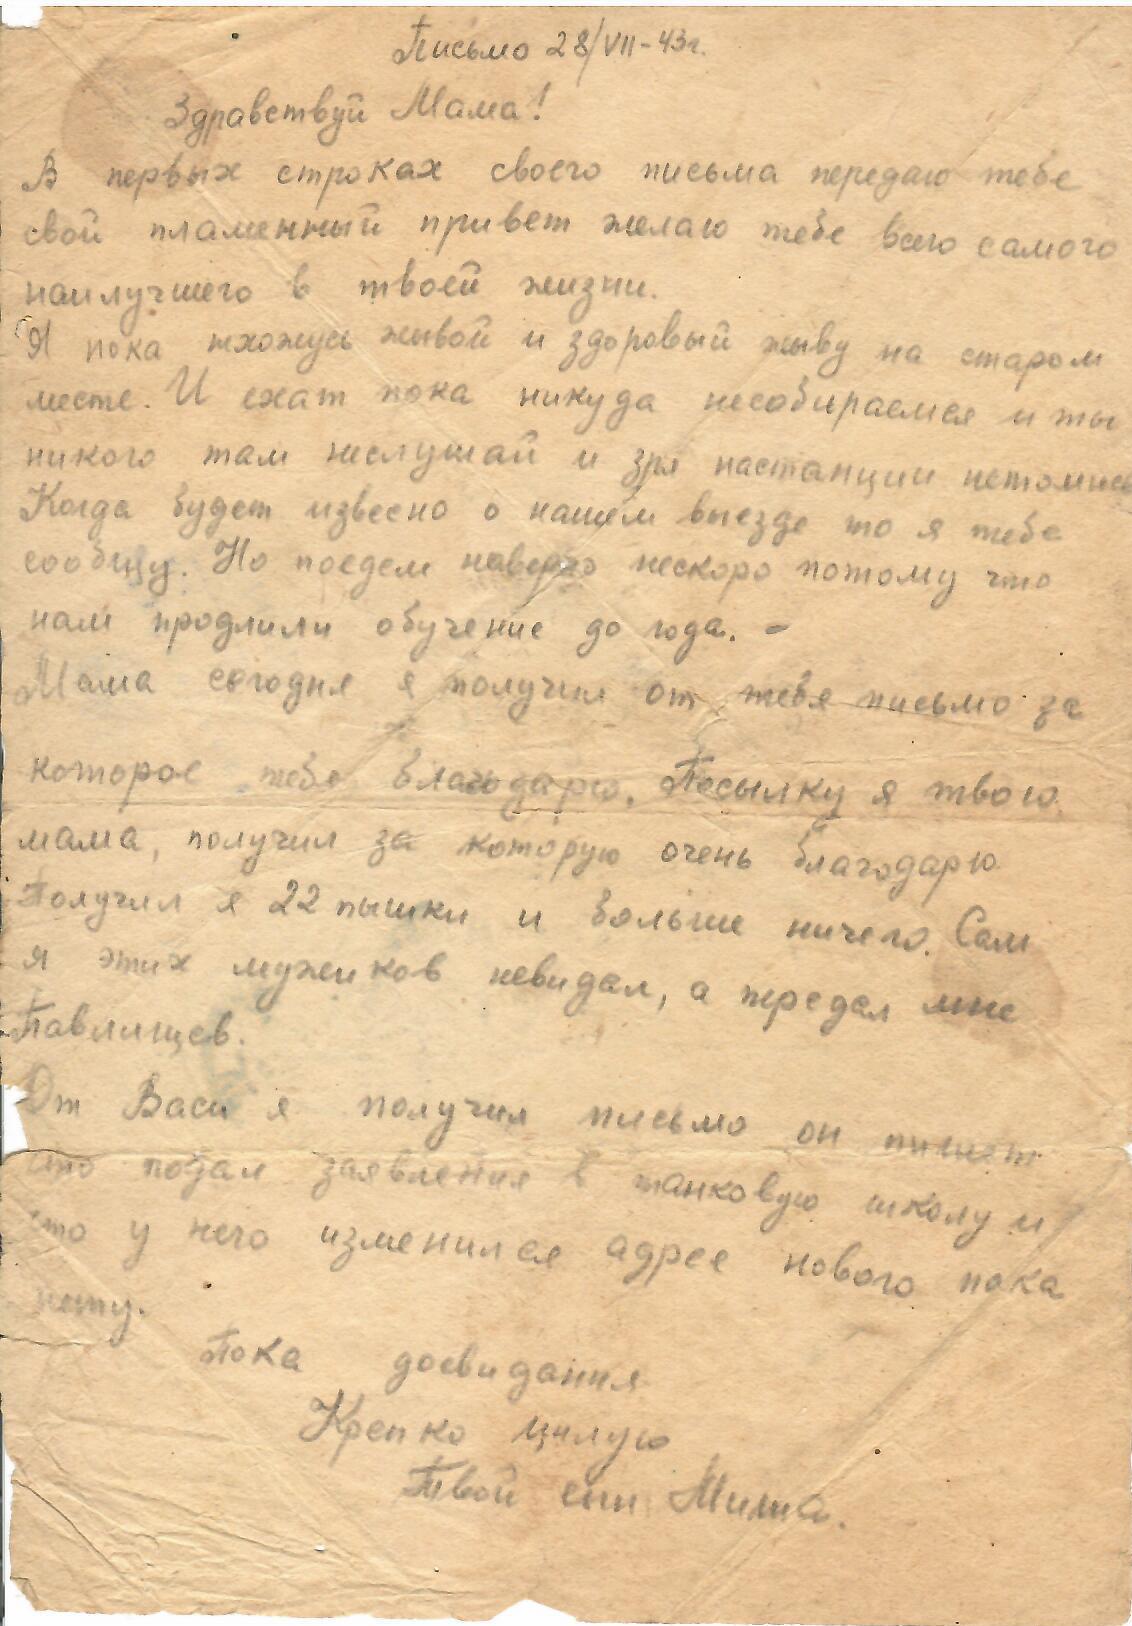 Письмо 28/VII-43г.
Здравствуй Мама!
В первых строках своего письма передаю тебе
свой пламенный привет желаю тебе всего самого
наилучшего в твоей жизни.
Я пока нхожусь жывой и здоровый жыву на старом
месте. И ехат пока никуда несобираемся и ты
никого там неслушай и зря настанции нетомись
Когда будет извесно о нашем выезде то я тебе
сообщу. Но поедем наверно нескоро потому что
нам продлили обучение до года. -
Мама сегодня я получил от тебя письмо за
которое тебя благодарю. Посылку я твою
мама, получил за которую очень благодарю
Получил я 22 пышки и больше ничего. Сам
я этих мужиков невидал, а передал мне
Павлищев.
От Васи я получил письмо он пишет
что подал заявления в танковую школу и
что у него изменился адрес нового пока
нету.
Пока досвидания
Крепко цилую
Твой сын Миша.